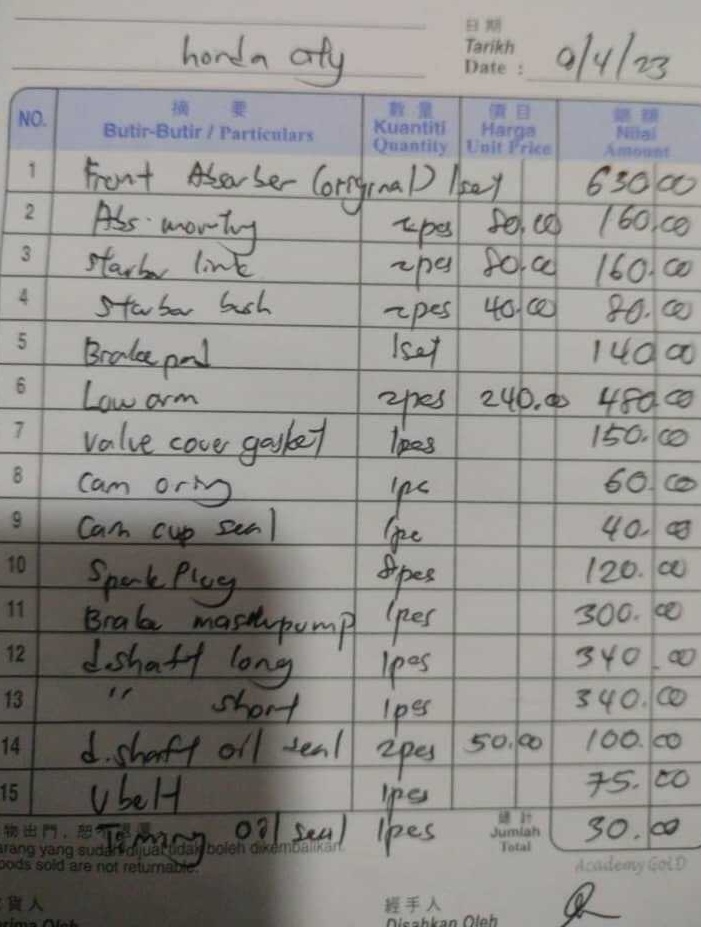 日期
Tarikh
Date : 9/4/23
honda city
NO. 摘要 Butir-Butir / Particulars 數量 Kuantiti Quantity 價目 Harga Unit Price 總額 Nilai Amount
1 Front Absorber (original) 1set 630.00
2 Abs. mounting 2pcs 80.00 160.00
3 Starbar link 2pcs 80.00 160.00
4 Starbar bush 2pcs 40.00 80.00
5 Brake pad 1set 140.00
6 Low arm 2pcs 240.00 480.00
7 Valve cover gasket 1pcs 150.00
8 Cam oring 1pc 60.00
9 Cam cup seal 1pc 40.00
10 Spark Plug 8pcs 120.00
11 Brake master pump 1pcs 300.00
12 d.shaft long 1pcs 340.00
13 " short 1pcs 340.00
14 d.shaft oil seal 2pcs 50.00 100.00
15 V belt 1pcs 75.00
Timing Oil seal 1pcs 30.00
物出門, 恕
總計 Jumlah Total
arang yang sudah dijual tidak boleh dikembalikan.
oods sold are not returnable.
Academy GoLD
貨人
erima Oleh
經手人
Disahkan Oleh